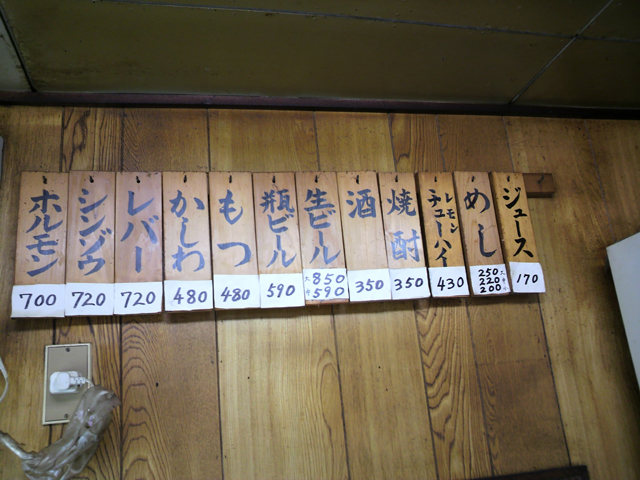 ホルモン
700
シンゾウ
720
レバー
720
かしわ
480
もつ
480
瓶ビール
590
生ビール
大 850
中 590
酒
350
焼酎
350
レモン
チューハイ
430
めし
250 大
220 中
200 小
ジュース
170